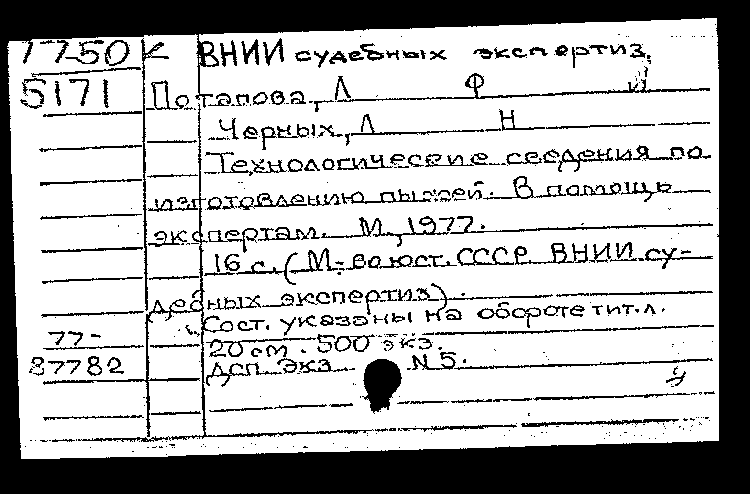 7750 К ВНИИ судебных экспертиз,
5171 Потапова, Л Ф и
Черных, Л Н
Технологические сведения по
изготовлению пыжей. В помощь
экспертам. М., 1977.
16 с. (М-во юст. СССР ВНИИ су-
дебных экспертиз).
Сост. указаны на обороте тит. л.
77- 20 см. 500 экз.
87782 ДСП. Экз N 5.